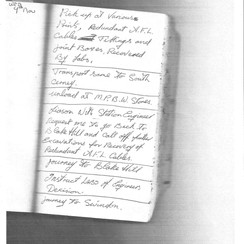 Pick up at Various
Points, Redundant A.F.L
Cables Fittings and
Joint Boxes Recovered
By Jobs.
Transport same to South
Cerney.
unload at M.P.B.W Stores
Liason With Station Engineer
Request me to go Back to
Blake Hill and Call off
Excavations for Recovery of
Redundant A.F.L Cables.
Journey to Blake Hill
Instruct of Engineers
Decision.
Journey to Swindon.